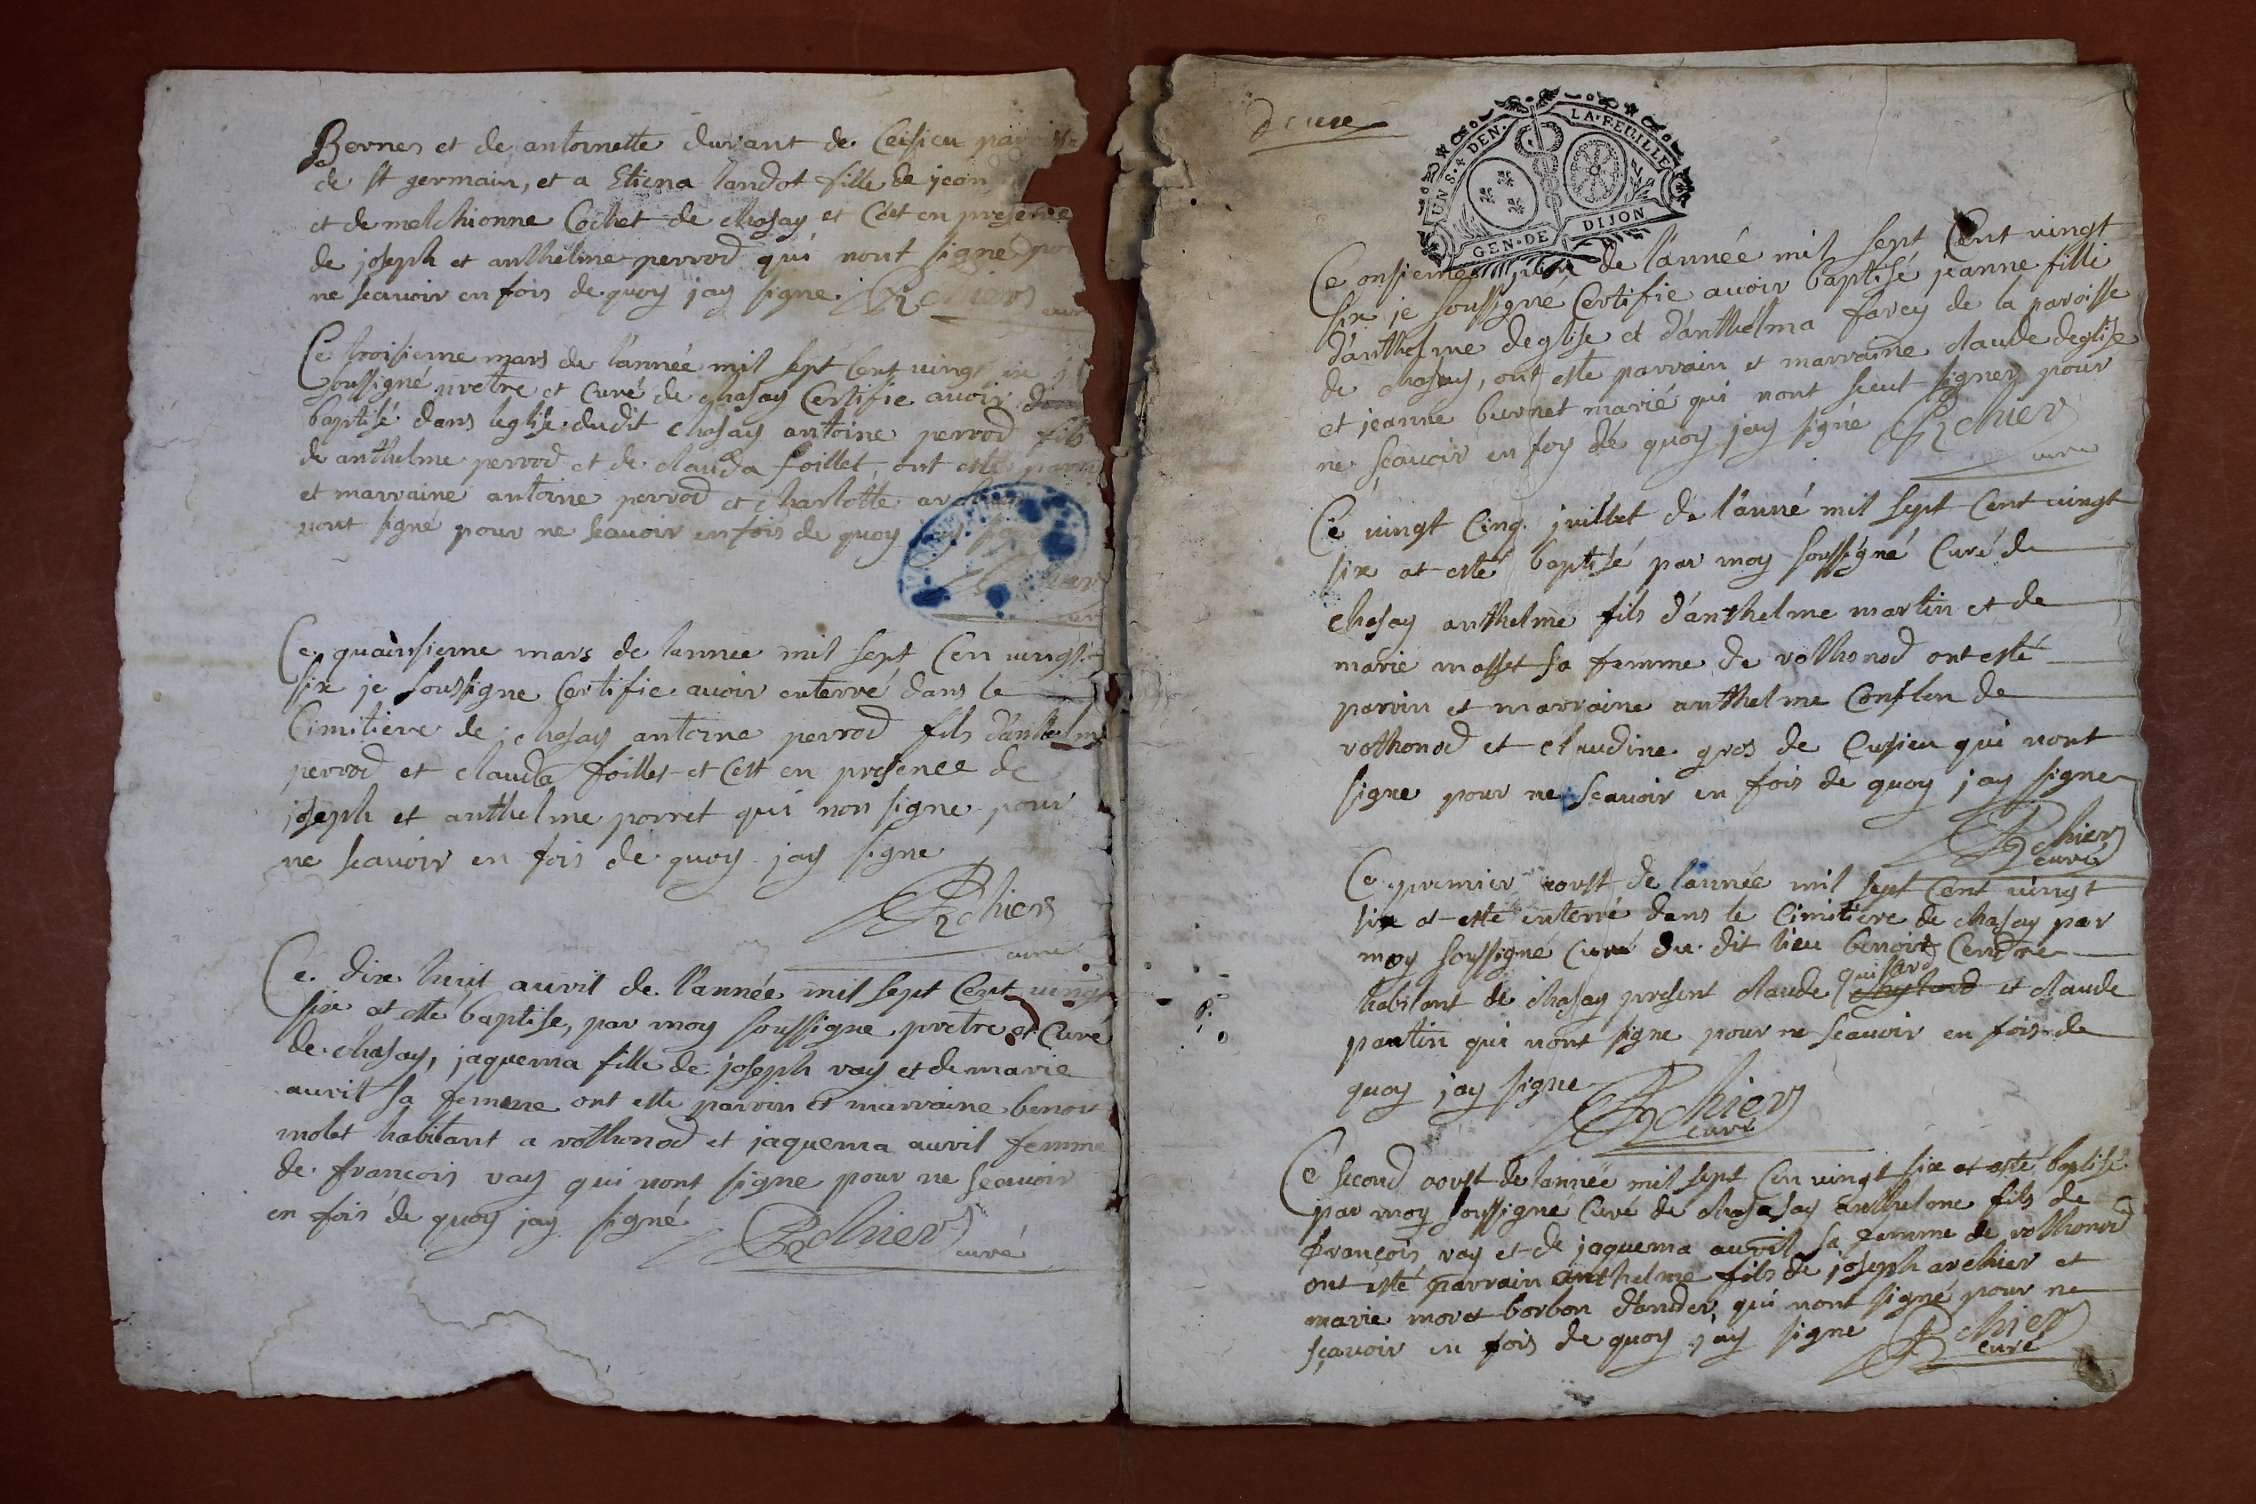 Bernes et de antoinette durant de Ceisieu
de st germain, et a Etiena landot fille de jean
et de melchionne Cochet de chasay et Cest en presence
de joseph et anthelme perrod qui nont signé
ne scavoir en fois de quoy jay signe Archier
curé
Ce troisieme mars de l'année mil sept Cent vingt six
soussigné pretre et Curé de chasay Certifie avoir
baptisé dans leglise dudit chasay antoine perrod fils
de anthelme perrod et de clauda foillet, ont esté
et marraine antoine perrod et charlotte
nont signé pour ne scavoir en fois de quoy
Ce quainsieme mars de lannee mil sept Cen vingt
six je soussigne Certifie avoir enterré dans le
Cimitiere de chasay antoine perrod fils d'anthelme
perrod et clauda foillet et Cest en presence de
joseph et anthelme porret qui non signe pour
ne scavoir en fois de quoy jay signe
Archier
curé
Ce dix huit auvril de l'année mil sept Cent vingt
six at esté baptise, par moy soussigne pretre et Curé
de chasay, jaquema fille de joseph vay et de marie
auvril sa femme ont esté parrin et marraine benoit
molet habitant a vothonod et jaquema auvril femme
de françois vay qui nont signe pour ne scavoir
en fois de quoy jay signé Archier
curé
deuxe
UN S. 4 DEN. LA FEUILLE
GEN. DE DIJON
Ce onsieme juin de l'année mil sept Cent vingt
six je soussigné Certifie avoir baptisé jeanne fille
d'anthelme deglise et d'anthelma farcy de la paroisse
de chasay, ont esté parrain et marraine claude deglise
et jeanne burnet marié qui nont sceut signer pour
ne scavoir en foy de quoy jay signé Archier
curé
Ce vingt Cinq juillet de l'anné mil sept Cent vingt
six at esté baptisé par moy soussigné Curé de
chasay anthelme fils d'anthelme martin et de
marie masset sa femme de vothonod ont esté
parrin et marraine anthelme Conflon de
vothonod et claudine gros de Cusieu qui nont
signe pour ne scavoir en fois de quoy jay signe
Archier
curé
Ce premier aoust de lannée mil sept Cent vingt
six at esté enterré dans le Cimitiere de chasay par
moy soussigné Curé du dit lieu benoit Cendre
quisard
habitant de chasay present claude et claude
pantin qui nont signe pour ne scavoir en fois de
quoy jay signe Archier
curé
Ce second aoust de lannée mil sept Cen vingt six at esté baptisé
par moy soussigné Curé de chasasay anthelme fils de
françois vay et de jaquema auvril sa femme de vothonod
ont esté parrain anthelme fils de joseph archier et
marie moret borbon d'ander qui nont signé pour ne
sçavoir en fois de quoy jay signe Archier
curé